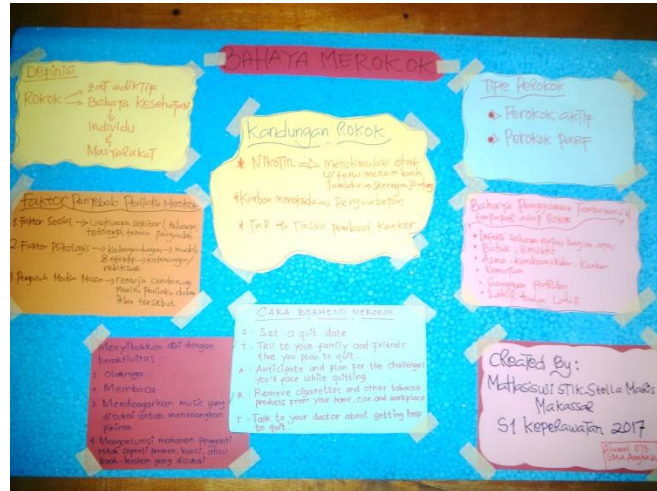 BAHAYA MEROKOK
Definisi
Rokok → zat adiktif
Bahaya Kesehatan
Individu
&
Masyarakat
Kandungan Rokok
* Nikotin ⇒ menstimulasi otak
* Karbon monoksida
* TaR → racun pembuat kanker
Tipe Perokok
Perokok aktif
Perokok Pasif
Faktor Penyebab Perilaku Merokok
1. Faktor Sosial → Lingkungan sekitar (keluarga,
tetangga, teman
2. Faktor Psikologis →
3. Pengaruh Media Massa → remaja cenderung
perilaku dalam
iklan tersebut
Bahaya
terpapar asap Rokok
• Infeksi saluran napas bagian atas
Batuk
• Asma, Kanker
•
• Gangguan
• Lahir
CARA BERHENTI MEROKOK
S : Set a quit date
T : Tell to your family and friends
that you plan to quit
A : Anticipate and plan for the challenges
you'll face while quitting
R : Remove cigarettes and other tobacco
products from your home, car, and workplace
T : Talk to your doctor about getting help
to quit.
Menyibukkan diri dengan
beraktivitas :
1. Olahraga
2. Membaca
3. Mendengarkan music yang
disukai untuk menenangkan
pikiran
4. Mengonsumsi makanan
seperti permen, kuaci, atau
buah-buahan yang disukai
Created By :
Mahasiswi STIK Stella Maris
Makassar
S1 Keperawatan 2017
Alumni
SMA